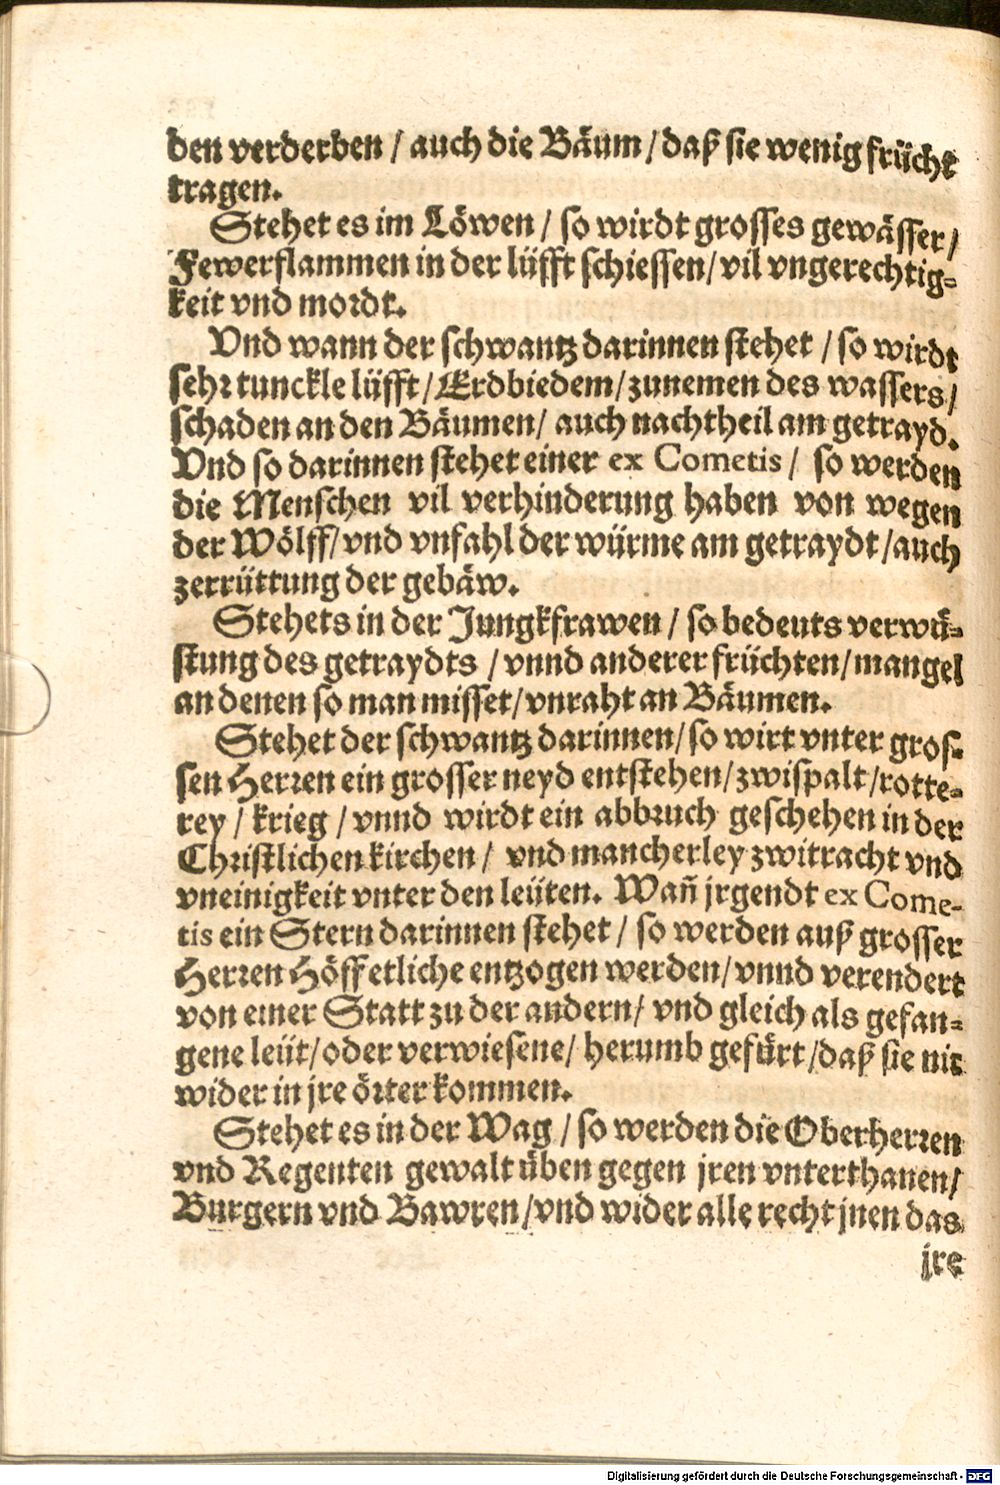 den verderben / auch die Bäum / daß sie wenig frücht
tragen.
Stehet es im Löwen / so wirdt grosses gewässer /
Fewerflammen in der lüfft schiessen / vil vngerechtig-
keit vnd mordt.
Vnd wann der schwantz darinnen stehet / so wirdt
sehr tunckle lüfft / Erdbiedem / zunemen des wassers /
schaden an den Bäumen / auch nachtheil am getrayd.
Vnd so darinnen stehet einer ex Cometis / so werden
die Menschen vil verhinderung haben von wegen
der Wölff / vnd vnfahl der würme am getraydt / auch
zerrüttung der gebäw.
Stehets in der Jungkfrawen / so bedeuts verwü-
stung des getraydts / vnnd anderer früchten / mangel
an denen so man misset / vnraht an Bäumen.
Stehet der schwantz darinnen / so wirt vnter gros-
sen Herren ein grosser neyd entstehen / zwispalt / rotte-
rey / krieg / vnnd wirdt ein abbruch geschehen in der
Christlichen kirchen / vnd mancherley zwitracht vnd
vneinigkeit vnter den leüten. Wañ jrgendt ex Come-
tis ein Stern darinnen stehet / so werden auß grosser
Herren Höff etliche entzogen werden / vnnd verendert
von einer Statt zu der andern / vnd gleich als gefan-
gene leüt / oder verwiesene / herumb gefürt / daß sie nit
wider in jre örter kommen.
Stehet es in der Wag / so werden die Oberherren
vnd Regenten gewalt üben gegen jren vnterthanen /
Burgern vnd Bawren / vnd wider alle recht jnen das
jre
Digitalisierung gefördert durch die Deutsche Forschungsgemeinschaft - DFG